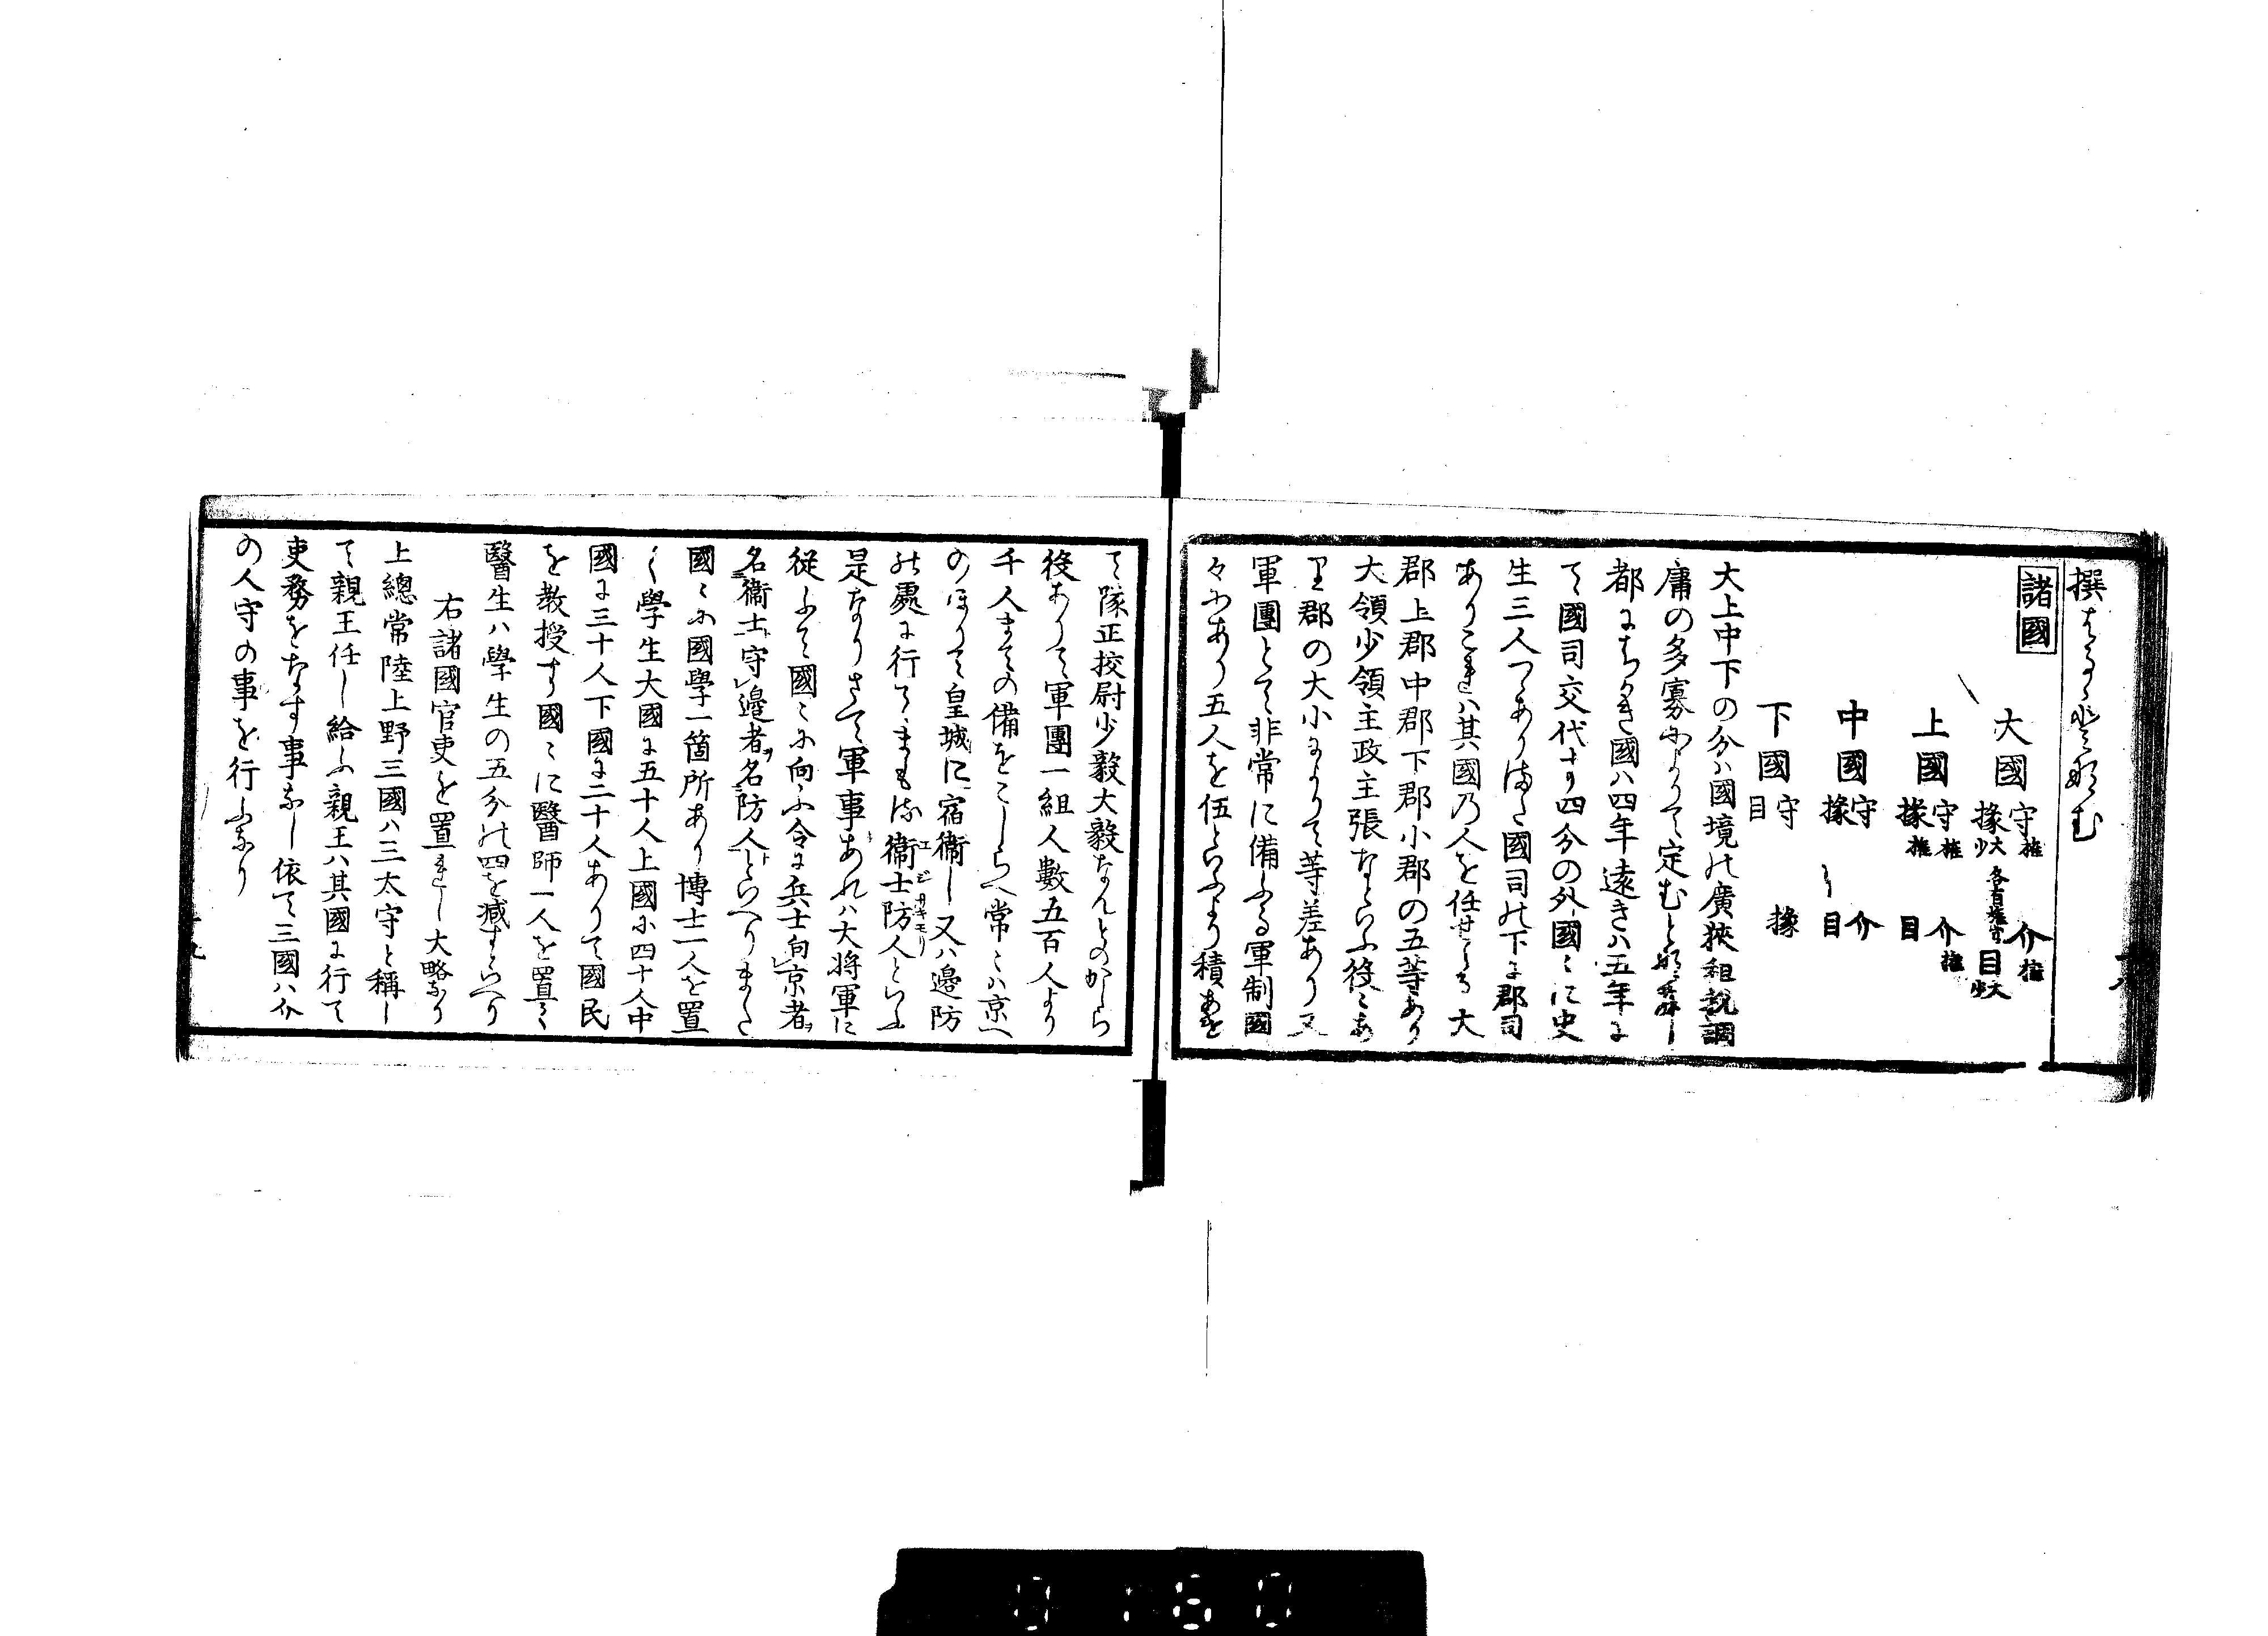 撰はるゝ所なむ
諸國
大國 守権 介権
掾大少 各有権守 目大少
上國 守権 介権
掾権 目
中國 守 介
掾 目
下國 守 掾
目
大上中下の分ハ國境の廣狹租税調
庸の多寡によりて定むと
都にちかき國ハ四年遠きハ五年に
て國司交代す四分の外國々に史
生三人つゝあり また國司の下に郡司
ありこれハ其國乃人を任せらる大
郡上郡中郡下郡小郡の五等あり
大領少領主政主張なといふ役々あ
り郡の大小によりて等差あり又
軍團とて非常に備ふる軍制國
々にあり五人を伍といふより積あけ
て隊正挍尉少毅大毅なんとのかしら
役ありて軍團一組人數五百人より
千人まての備をこしらへ常々ハ京へ
のほりて皇城に宿衞し又ハ邊防
の處に行てまもる衞士防人といふ
是なりさて軍事あれハ大将軍に
從ふて國々に向ふ令に兵士向京者ヲ
名衞士守邊者ヲ名防人といへりまた
國々に國學一箇所あり博士一人を置
く學生大國に五十人上國に四十人中
國に三十人下國に二十人ありて國民
を教授す國々に醫師一人を置て
醫生ハ學生の五分の四を減すといへり
右諸國官吏を置れし大略なり
上總常陸上野三國ハ三太守と稱し
て親王任し給ふ親王ハ其國に行て
吏務をなす事なし依て三國ハ介
の人守の事を行ふなり